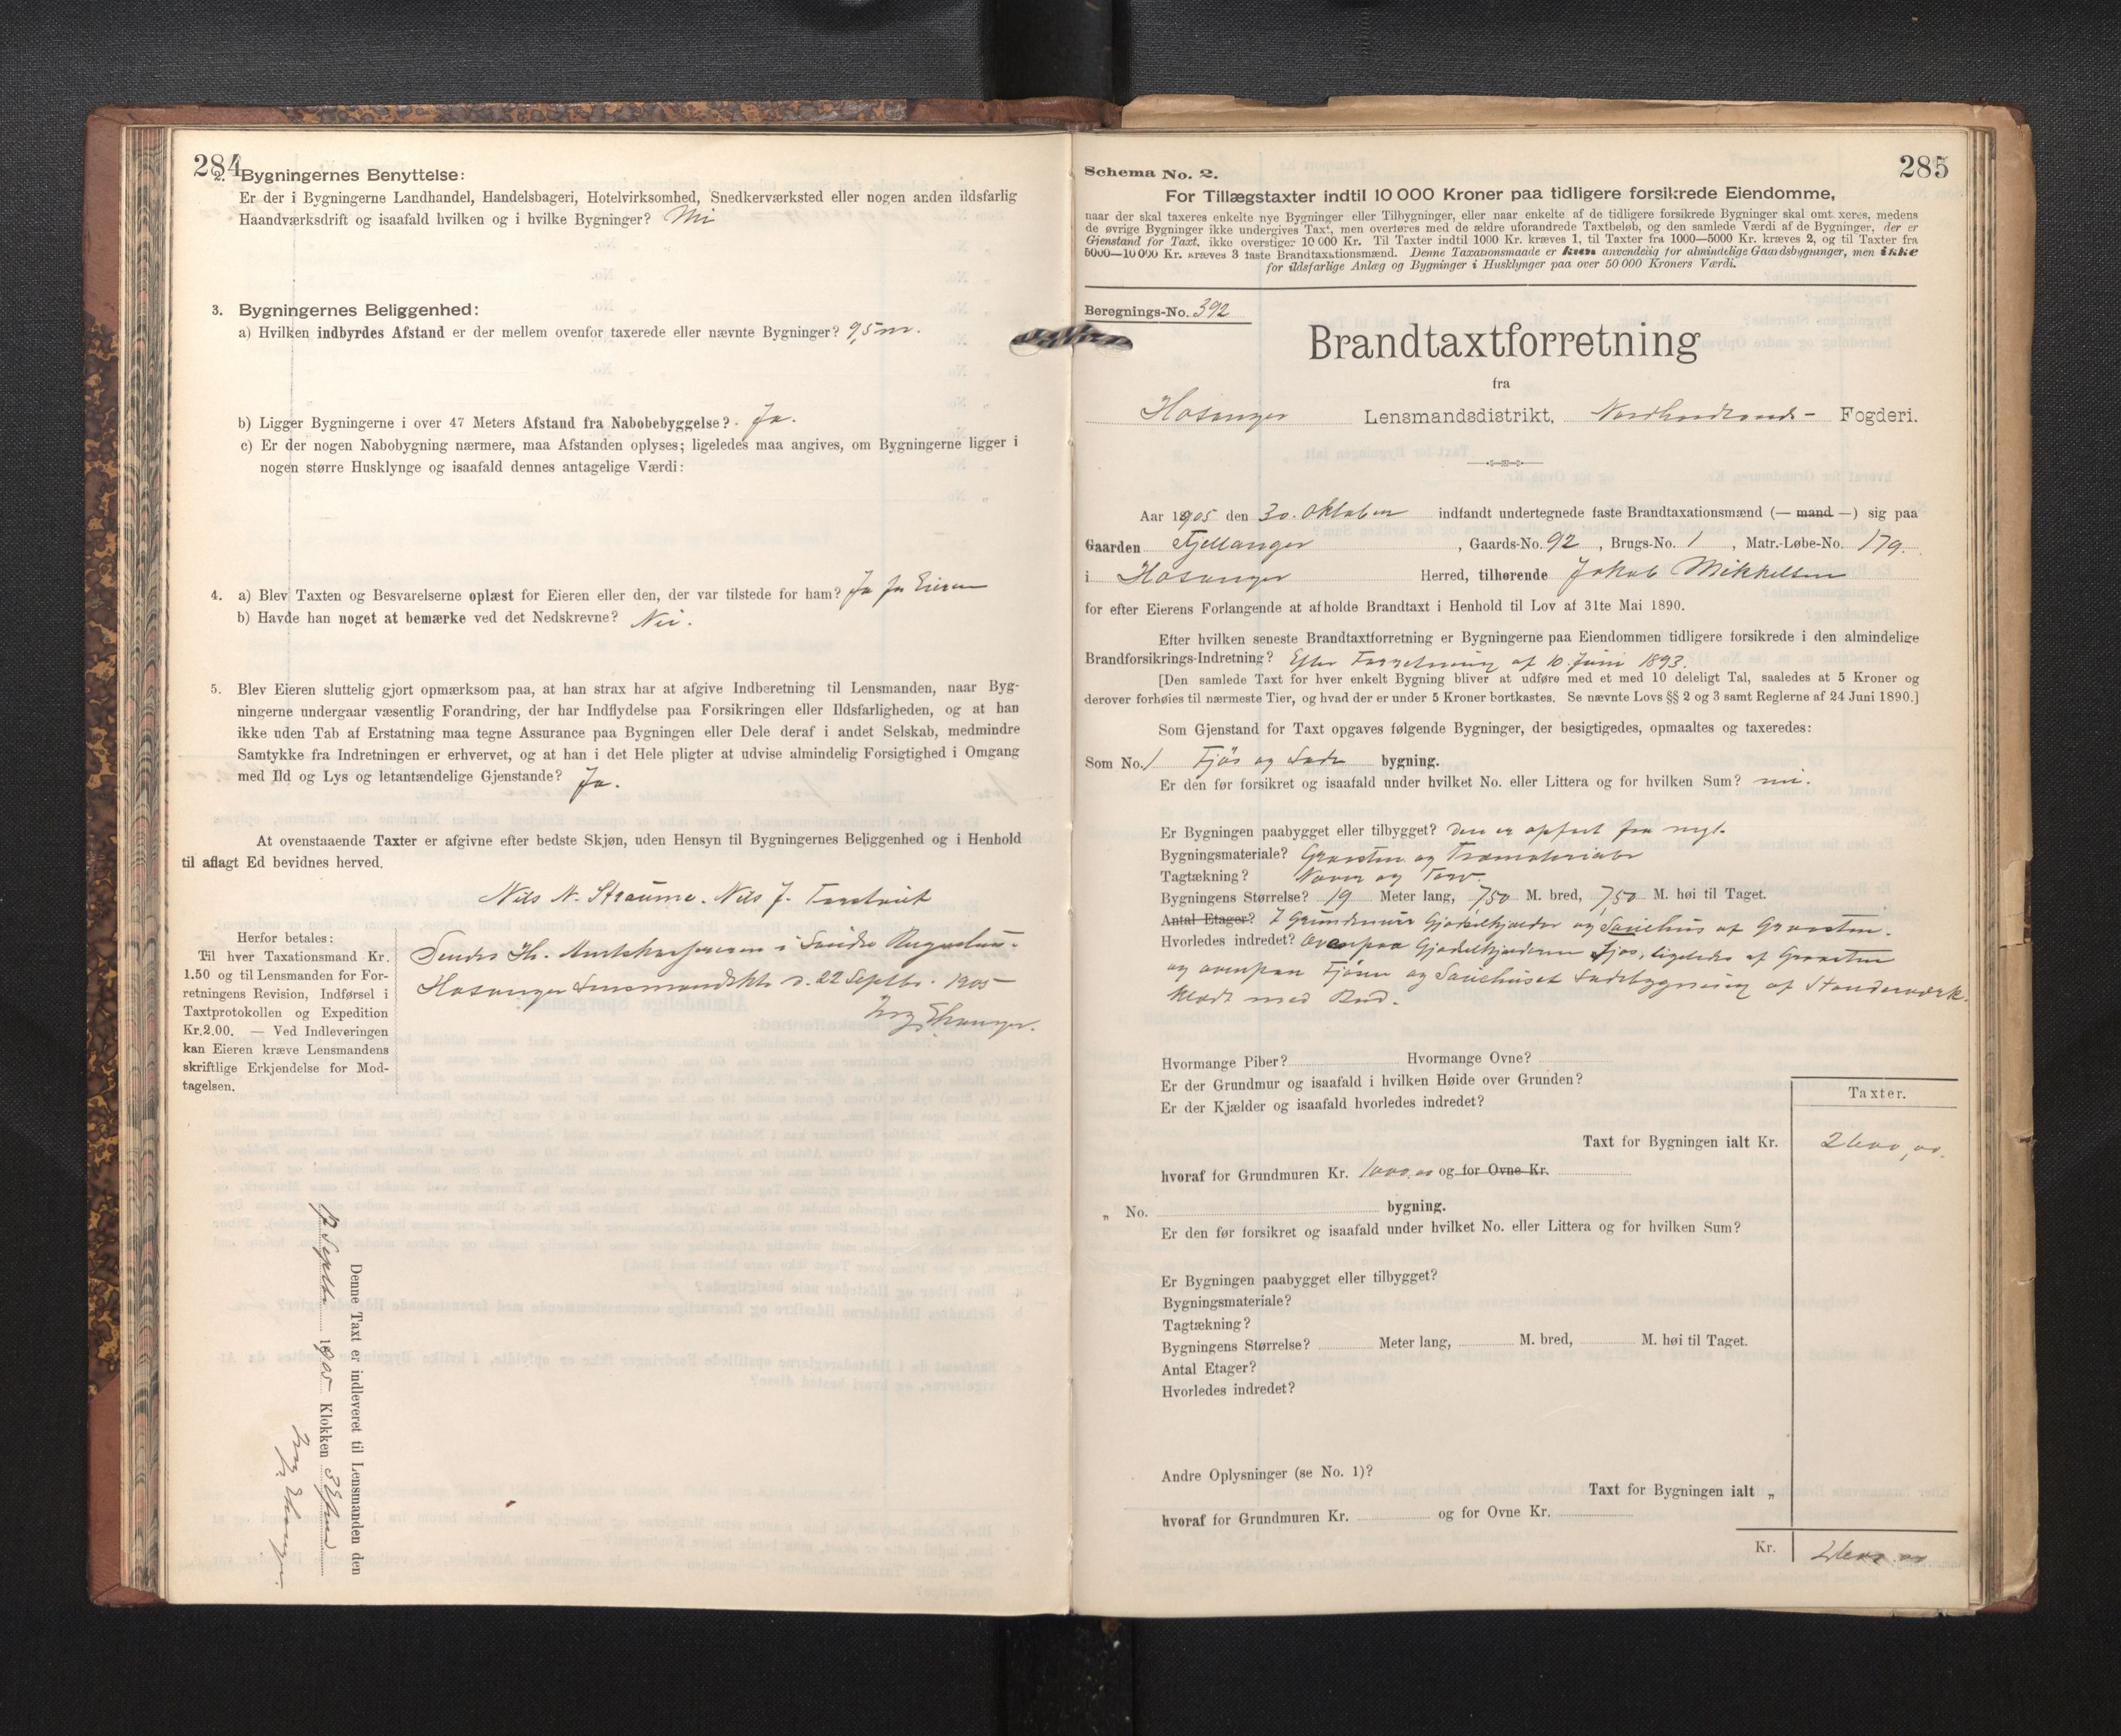 284
2. Bygningernes Benyttelse:
Er der i Bygningerne Landhandel, Handelsbageri, Hotelvirksomhed, Snedkerværksted eller nogen anden ildsfarlig
Haandværksdrift og isaafald hvilken og i hvilke Bygninger? Nei
3. Bygningernes Beliggenhed:
a) Hvilken indbyrdes Afstand er der mellem ovenfor taxerede eller nævnte Bygninger? 9,5 m.
b) Ligger Bygningerne i over 47 Meters Afstand fra Nabobebyggelse? Ja.
c) Er der nogen Nabobygning nærmere, maa Afstanden oplyses; ligeledes maa angives, om Bygningerne ligger i
nogen større Husklynge og isaafald dennes antagelige Værdi:
4. a) Blev Taxten og Besvarelserne oplæst for Eieren eller den, der var tilstede for ham? Ja for Eieren
b) Havde han noget at bemærke ved det Nedskrevne? Nei.
5. Blev Eieren sluttelig gjort opmærksom paa, at han strax har at afgive Indberetning til Lensmanden, naar Byg-
ningerne undergaar væsentlig Forandring, der har Indflydelse paa Forsikringen eller Ildsfarligheden, og at han
ikke uden Tab af Erstatning maa tegne Assurance paa Bygningen eller Dele deraf i andet Selskab, medmindre
Samtykke fra Indretningen er erhvervet, og at han i det Hele pligter at udvise almindelig Forsigtighed i Omgang
med Ild og Lys og letantændelige Gjenstande? Ja.
At ovenstaaende Taxter er afgivne efter bedste Skjøn, uden Hensyn til Bygningernes Beliggenhed og i Henhold
til aflagt Ed bevidnes herved.
Nils N. Straume. Nils J.
Herfor betales:
Til hver Taxationsmand Kr.
1.50 og til Lensmanden for For-
retningens Revision, Indførsel i
Taxtprotokollen og Expedition
Kr.2.00. — Ved Indleveringen
kan Eieren kræve Lensmandens
skriftlige Erkjendelse for Mod-
tagelsen.
Sendes Hr. Amtskassereren i Søndre Bergenhus.
Hosanger Lensmandsktr. d. 22 Septbr. 1905
Denne Taxt er indleveret til Lensmanden den
Septbr. 1905 Klokken 3 Efterm.
285
Schema No. 2.
For Tillægstaxter indtil 10 000 Kroner paa tidligere forsikrede Eiendomme,
naar der skal taxeres enkelte nye Bygninger eller Tilbygninger, eller naar enkelte af de tidligere forsikrede Bygninger skal omt xeres, medens
de øvrige Bygninger ikke undergives Taxt, men overføres med de ældre uforandrede Taxtbeløb, og den samlede Værdi af de Bygninger, der er
Gjenstand for Taxt, ikke overstiger 10 000 Kr. Til Taxter indtil 1000 Kr. kræves 1, til Taxter fra 1000—5000 Kr. kræves 2, og til Taxter fra
5000—10 000 Kr. kræves 3 faste Brandtaxationsmænd. Denne Taxationsmaade er kun anvendelig for almindelige Gaardsbygninger, men ikke
for ildsfarlige Anlæg og Bygninger i Husklynger paa over 50 000 Kroners Værdi.
Beregnings-No. 392
Brandtaxtforretning
fra
Hosanger Lensmandsdistrikt, Nordhordlands Fogderi.
Aar 1905 den 30. Oktober indfandt undertegnede faste Brandtaxationsmænd (— mand —) sig paa
Gaarden Fjellanger, Gaards-No. 92, Brugs-No. 1, Matr.-Løbe-No. 179.
i Hosanger Herred, tilhørende Jakob Mikkelsen
for efter Eierens Forlangende at afholde Brandtaxt i Henhold til Lov af 31te Mai 1890.
Efter hvilken seneste Brandtaxtforretning er Bygningerne paa Eiendommen tidligere forsikrede i den almindelige
Brandforsikrings-Indretning? Efter Forretning af 10. Juni 1893.
[Den samlede Taxt for hver enkelt Bygning bliver at udføre med et med 10 deleligt Tal, saaledes at 5 Kroner og
derover forhøies til nærmeste Tier, og hvad der er under 5 Kroner bortkastes. Se nævnte Lovs §§ 2 og 3 samt Reglerne af 24 Juni 1890.]
Som Gjenstand for Taxt opgaves følgende Bygninger, der besigtigedes, opmaaltes og taxeredes:
Som No. 1 Fjøs og Lade bygning.
Er den før forsikret og isaafald under hvilket No. eller Littera og for hvilken Sum? nei.
Er Bygningen paabygget eller tilbygget? den er opført fra nyt.
Bygningsmateriale? Graasten og Træmaterialer
Tagtækning? Næver og Torv.
Bygningens Størrelse? 19 Meter lang, 7,50 M. bred, 7,50 M. høi til Taget.
Antal Etager? I Grundmuren Gjødselkjælder og Sauehus af Graasten.
Hvorledes indredet? Ovenpaa Gjødselkjælderen Fjøs, ligeledes af Graasten
og ovenpaa Fjøsen og Sauehuset Ladebygning af Stenderværk.
klædt med Bord.
Hvormange Piber? Hvormange Ovne?
Er der Grundmur og isaafald i hvilken Høide over Grunden?
Er der Kjælder og isaafald hvorledes indredet?
Taxter.
Taxt for Bygningen ialt Kr. 2600,00.
hvoraf for Grundmuren Kr. 1000,00 og for Ovne Kr.
„ No. bygning.
Er den før forsikret og isaafald under hvilket No. eller Littera og for hvilken Sum?
Er Bygningen paabygget eller tilbygget?
Bygningsmateriale?
Tagtækning?
Bygningens Størrelse? Meter lang, M. bred, M. høi til Taget.
Antal Etager?
Hvorledes indredet?
Andre Oplysninger (se No. 1)?
Taxt for Bygningen ialt „
hvoraf for Grundmuren Kr. og for Ovne Kr.
Kr. 2600.00